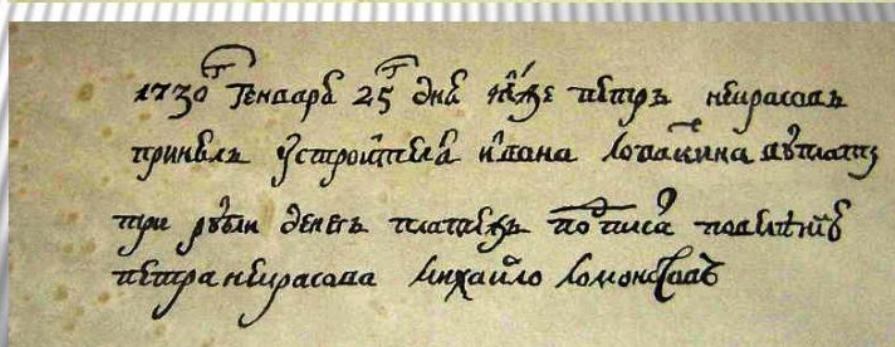 1730г Генваря 25г дня петръ некрасовъ
принелъ устроителя ивана вуплату
три рубли денегъ платежъ подписа повелѣнию
петра некрасова михайло ломоносовъ